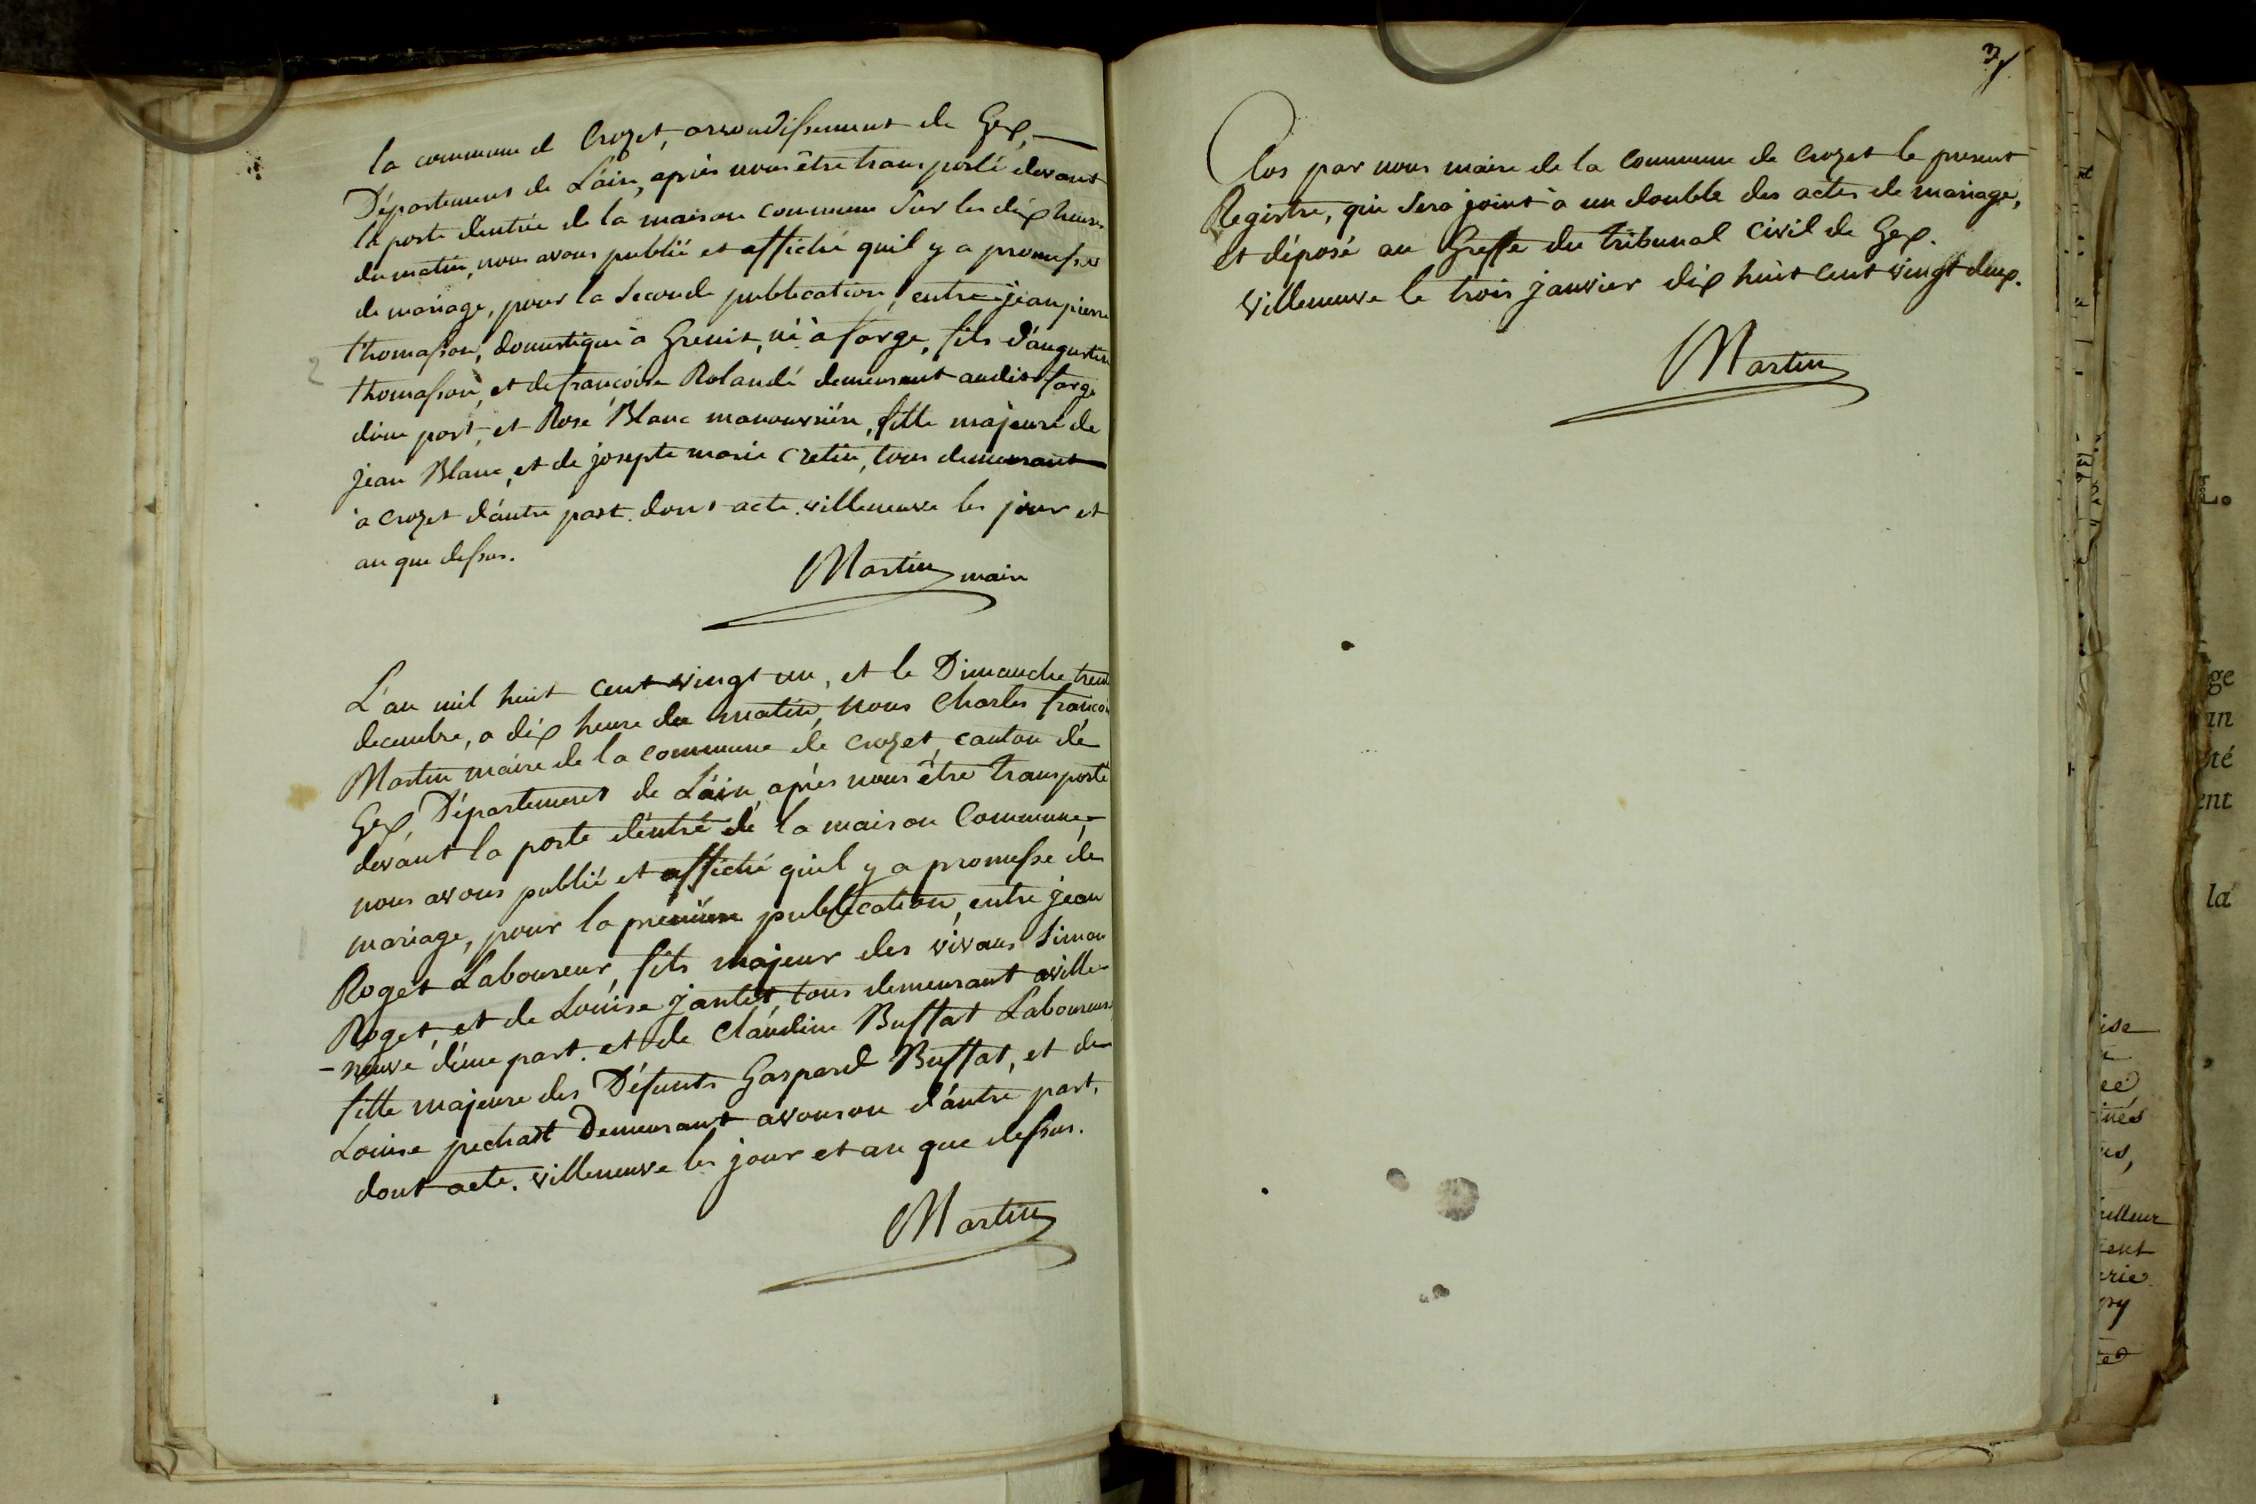 la commune d Crozet, arrondissement de Gex,
Département de L'ain, après nous être transporté devant
la porte d'entrée de la maison commune sur les dix heures
du matin, nous avons publié et affiché quil y a promesse
de mariage, pour la seconde publication, entre jean pierre
thomasson, domestique à Grenis, né à farge, fils d'augustin
thomasson, et de francoise Rolandé demeurant audit farge
d'une part, et Rose Blanc manouvrière, fille majeure de
jean Blanc, et de josepte marie cretin, tous demeurant
à crozet d'autre part. dont acte. villeneuve les jour et
an que dessus.
Martin maire
2
L'an mil huit cent vingt un, et le Dimanche trente
decembre, a dix heure du matin, nous Charles francois
Martin maire de la commune de crozet, canton de
Gex, Département de L'ain, après nous être transporté
devant la porte d'entré de la maison Commune,
nous avons publié et affiché quil y a promesse de
mariage, pour la première publication, entre jean
Roget Laboureur, fils majeur des vivans Simon
Roget, et de Louise jantet, tous demeurant aville-
-neuve d'une part. et de Claudine Buffat Laboureure
fille majeure des Défunts Gaspard Buffat, et de
Louise pechart Demeurant avouson d'autre part.
dont acte. villeneuve les jour et an que dessus.
Martin
3
Clos par nous maire de la Commune de Crozet le present
Registre, qui sera joint à un double des actes de mariage,
et déposé au Greffe du Tribunal Civil de Gex.
villeneuve le trois janvier dix huit cent vingt deux.
Martin
ge
an
té
ent
la